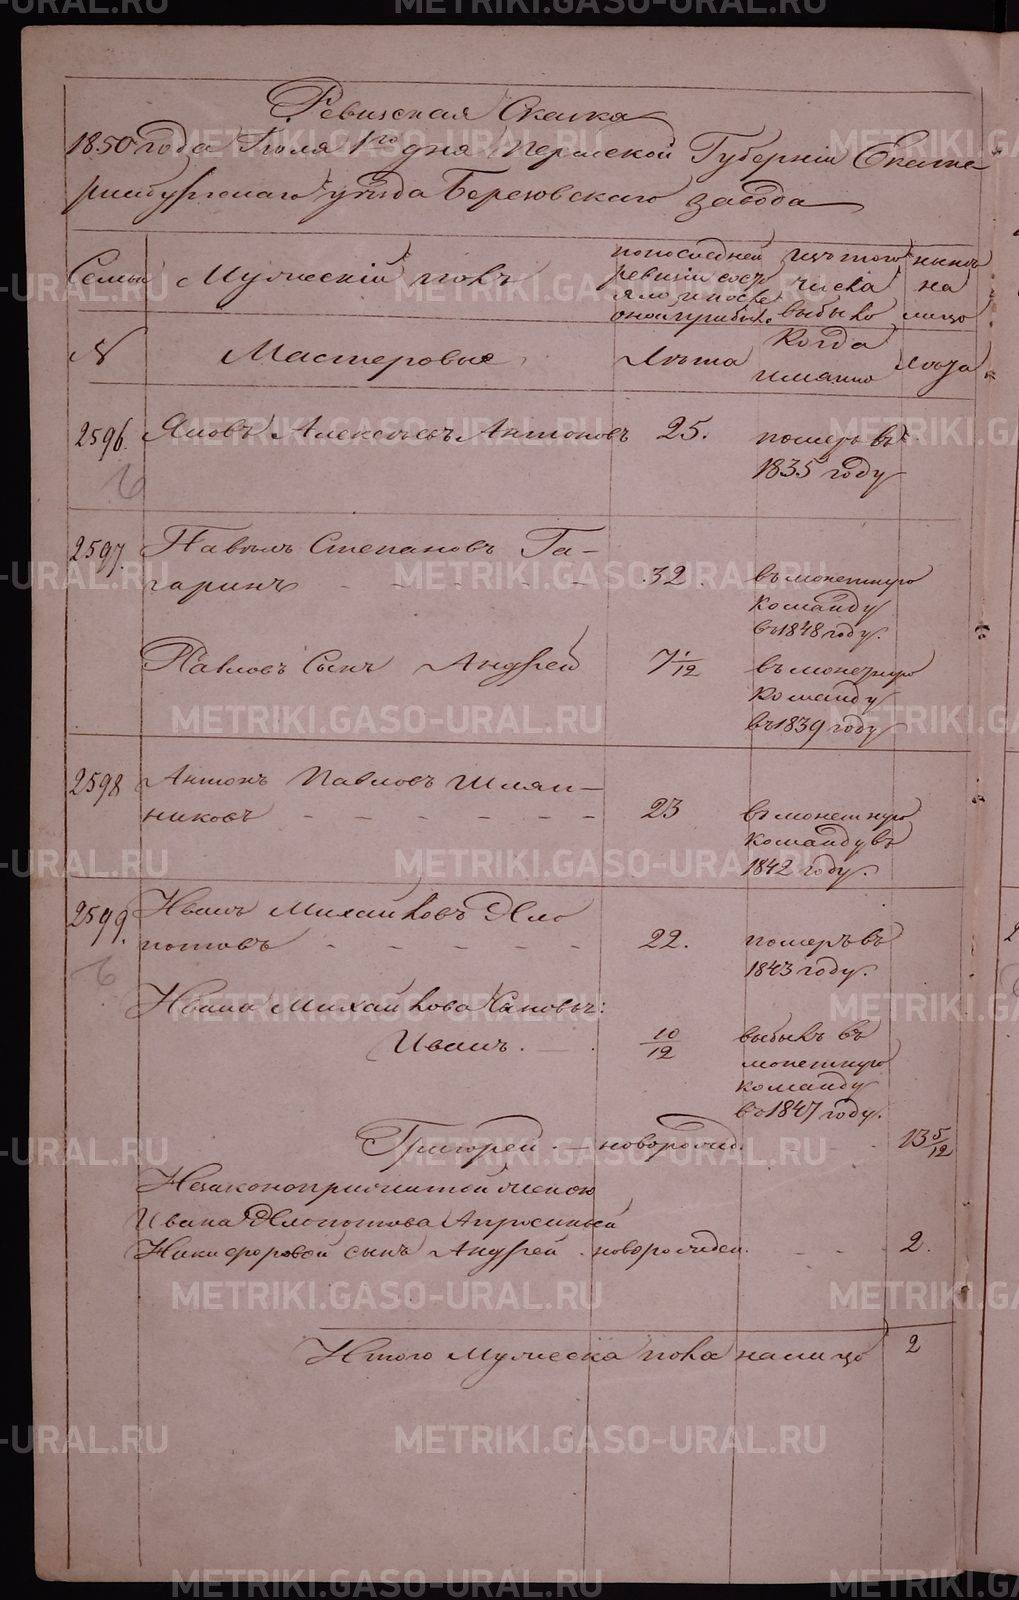 Ревизская Сказка
1850 года Июля 1го дня Пермской Губерніи Екате
ринбургскаго уѣзда Березовскаго завода
Семьи
Мужескій полъ
по последней
ревизіи сост
яло и после
оной прибыло
изъ того
числа
выбыло
нынѣ
на
лицо
№
Мастеровые
Лѣта
Когда
имянно
Лѣта
2596.
Яковъ Алексѣевъ Антоновъ
25.
померъ въ
1835 году
2597.
Павелъ Степановъ Га-
гаринъ
32.
въ монетную
команду
въ 1848 году.
Павловъ Сынъ Андрей
7 1/12
въ монетную
команду
въ 1839 году
2598
Антонъ Павловъ Шляп-
никовъ
23
въ монетную
команду въ
1842 году.
2599.
Иванъ Михайловъ
потовъ
22.
померъ въ
1843 году.
Ивана Михайлова Сыновья:
Иванъ.
10/12
выбылъ въ
монетную
команду
въ 1847 году.
Григорей - новорожд.
13 5/12
Незаконоприжитой женою
Ивана
Никифоровой сынъ Андрей - новорожден.
2.
Итого мужеска пола на лицо
2
METRIKI.GASO-URAL.RU